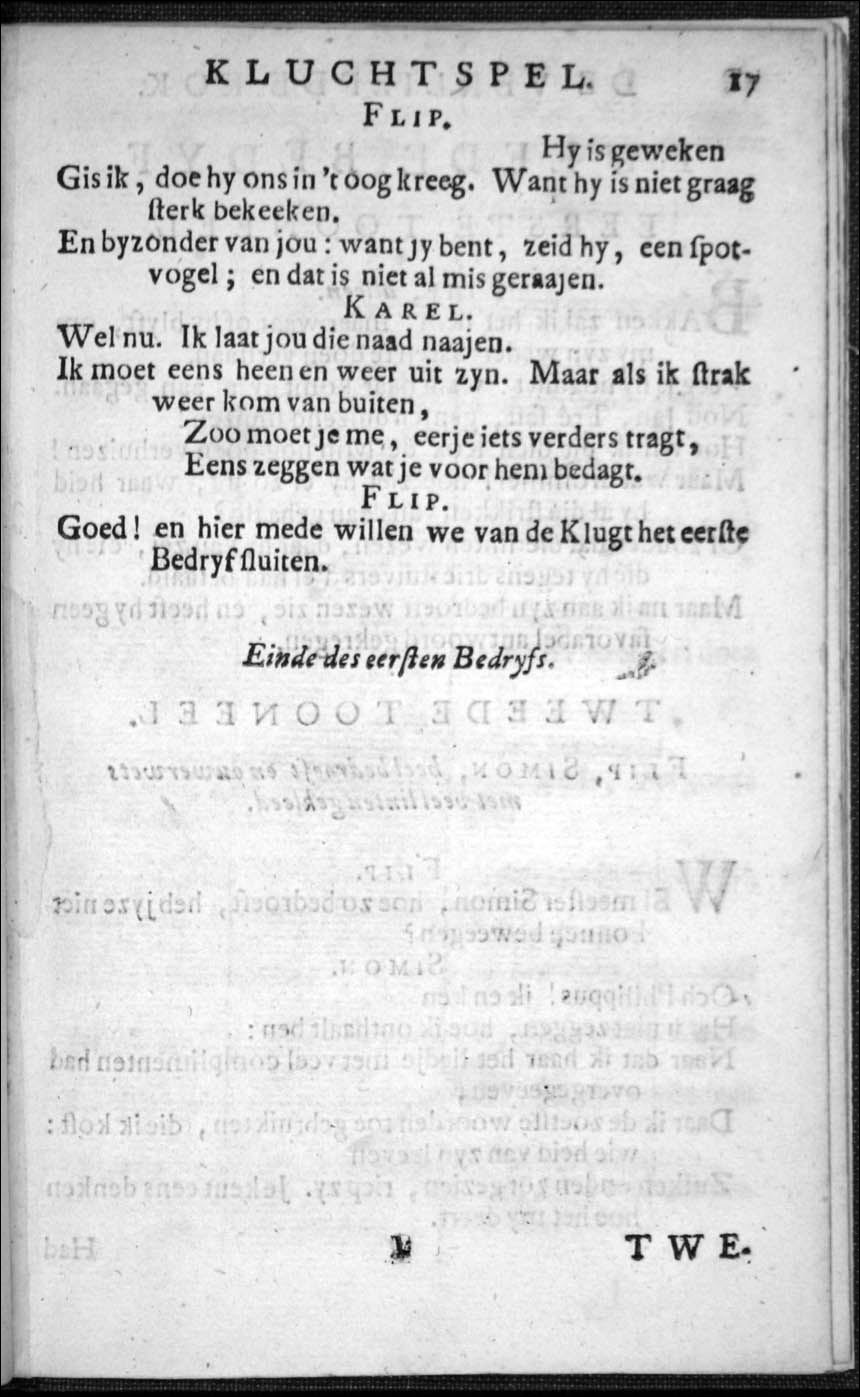 KLUCHTSPEL. 17
FLIP.
Hy is geweken
Gis ik, doe hy ons in 't oog kreeg. Want hy is niet graag
sterk bekeeken.
En byzonder van jou: want jy bent, zeid hy, een spot-
vogel; en dat is niet al mis geraajen.
KAREL.
Wel nu. Ik laat jou die naad naajen.
Ik moet eens heen en weer uit zyn. Maar als ik strak
weer kom van buiten,
Zoo moet je me, eer je iets verders tragt,
Eens zeggen wat je voor hem bedagt.
FLIP.
Goed! en hier mede willen we van de Klugt het eerste
Bedryf sluiten.
Einde des eersten Bedryfs.
TWE-